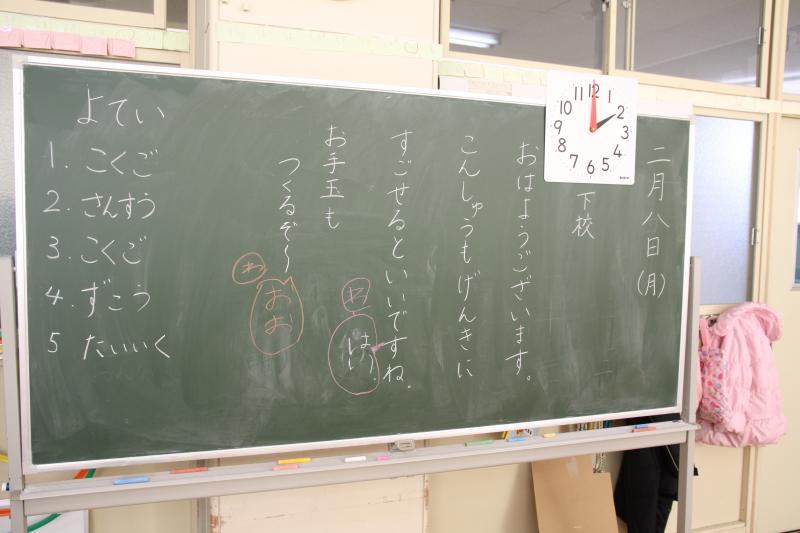 二月八日(月)
下校
おはようございます。
こんしゅうもげんきに
すごせるといいですね。
わ
はい。
お手玉も
つくるぞ〜
わ
おお
よてい
1. こくご
2. さんすう
3. こくご
4. ずこう
5 たいいく
12
1
2
3
4
5
6
7
8
9
10
11